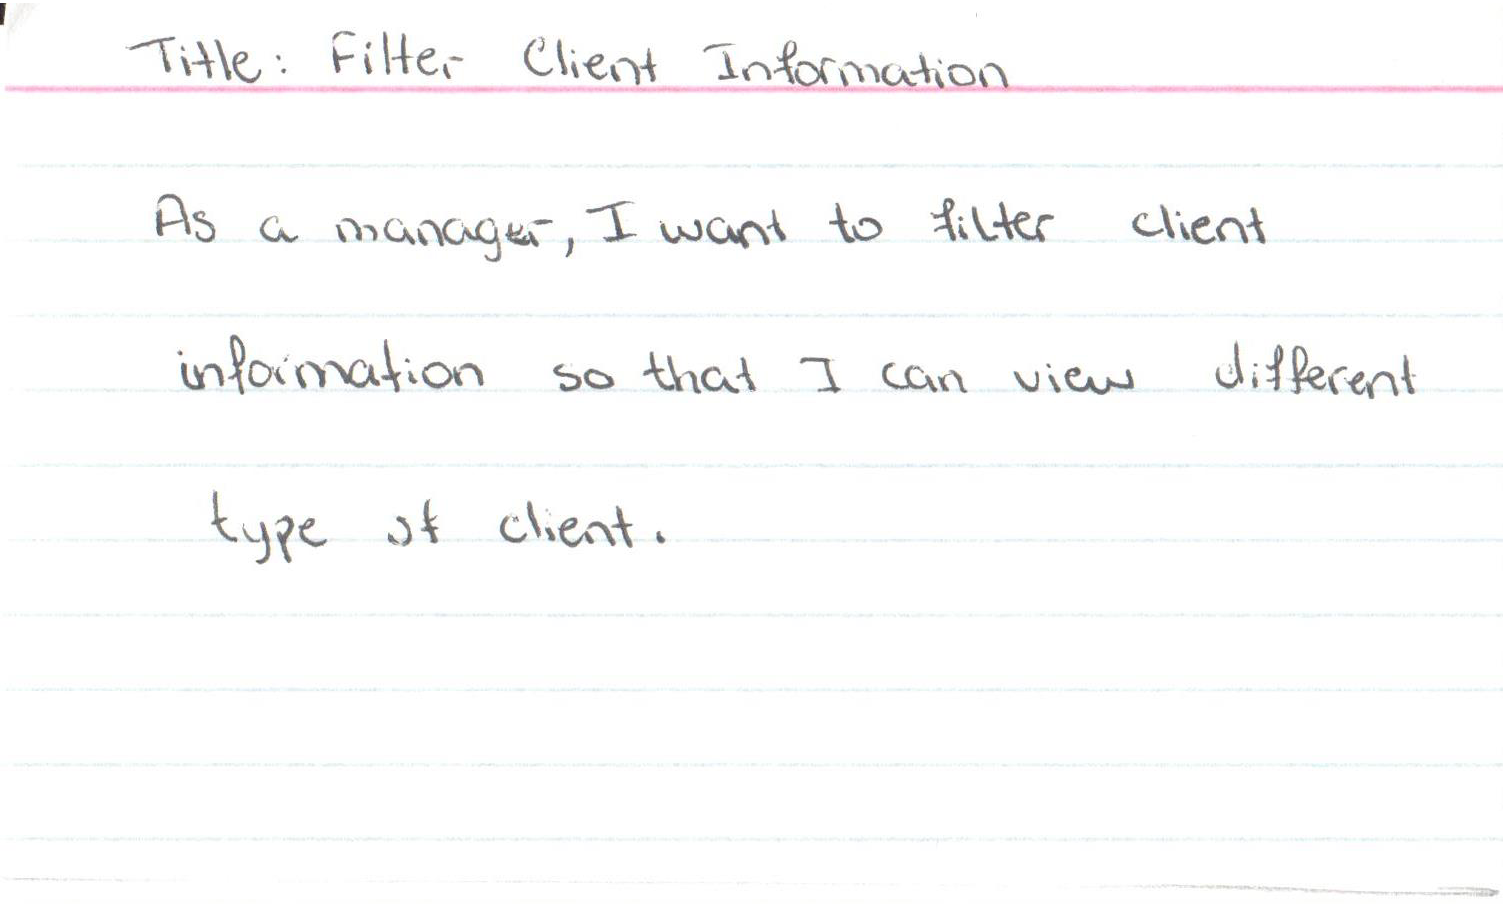 Title: Filter Client Information
As a manager, I want to filter client
information so that I can view different
type of client.